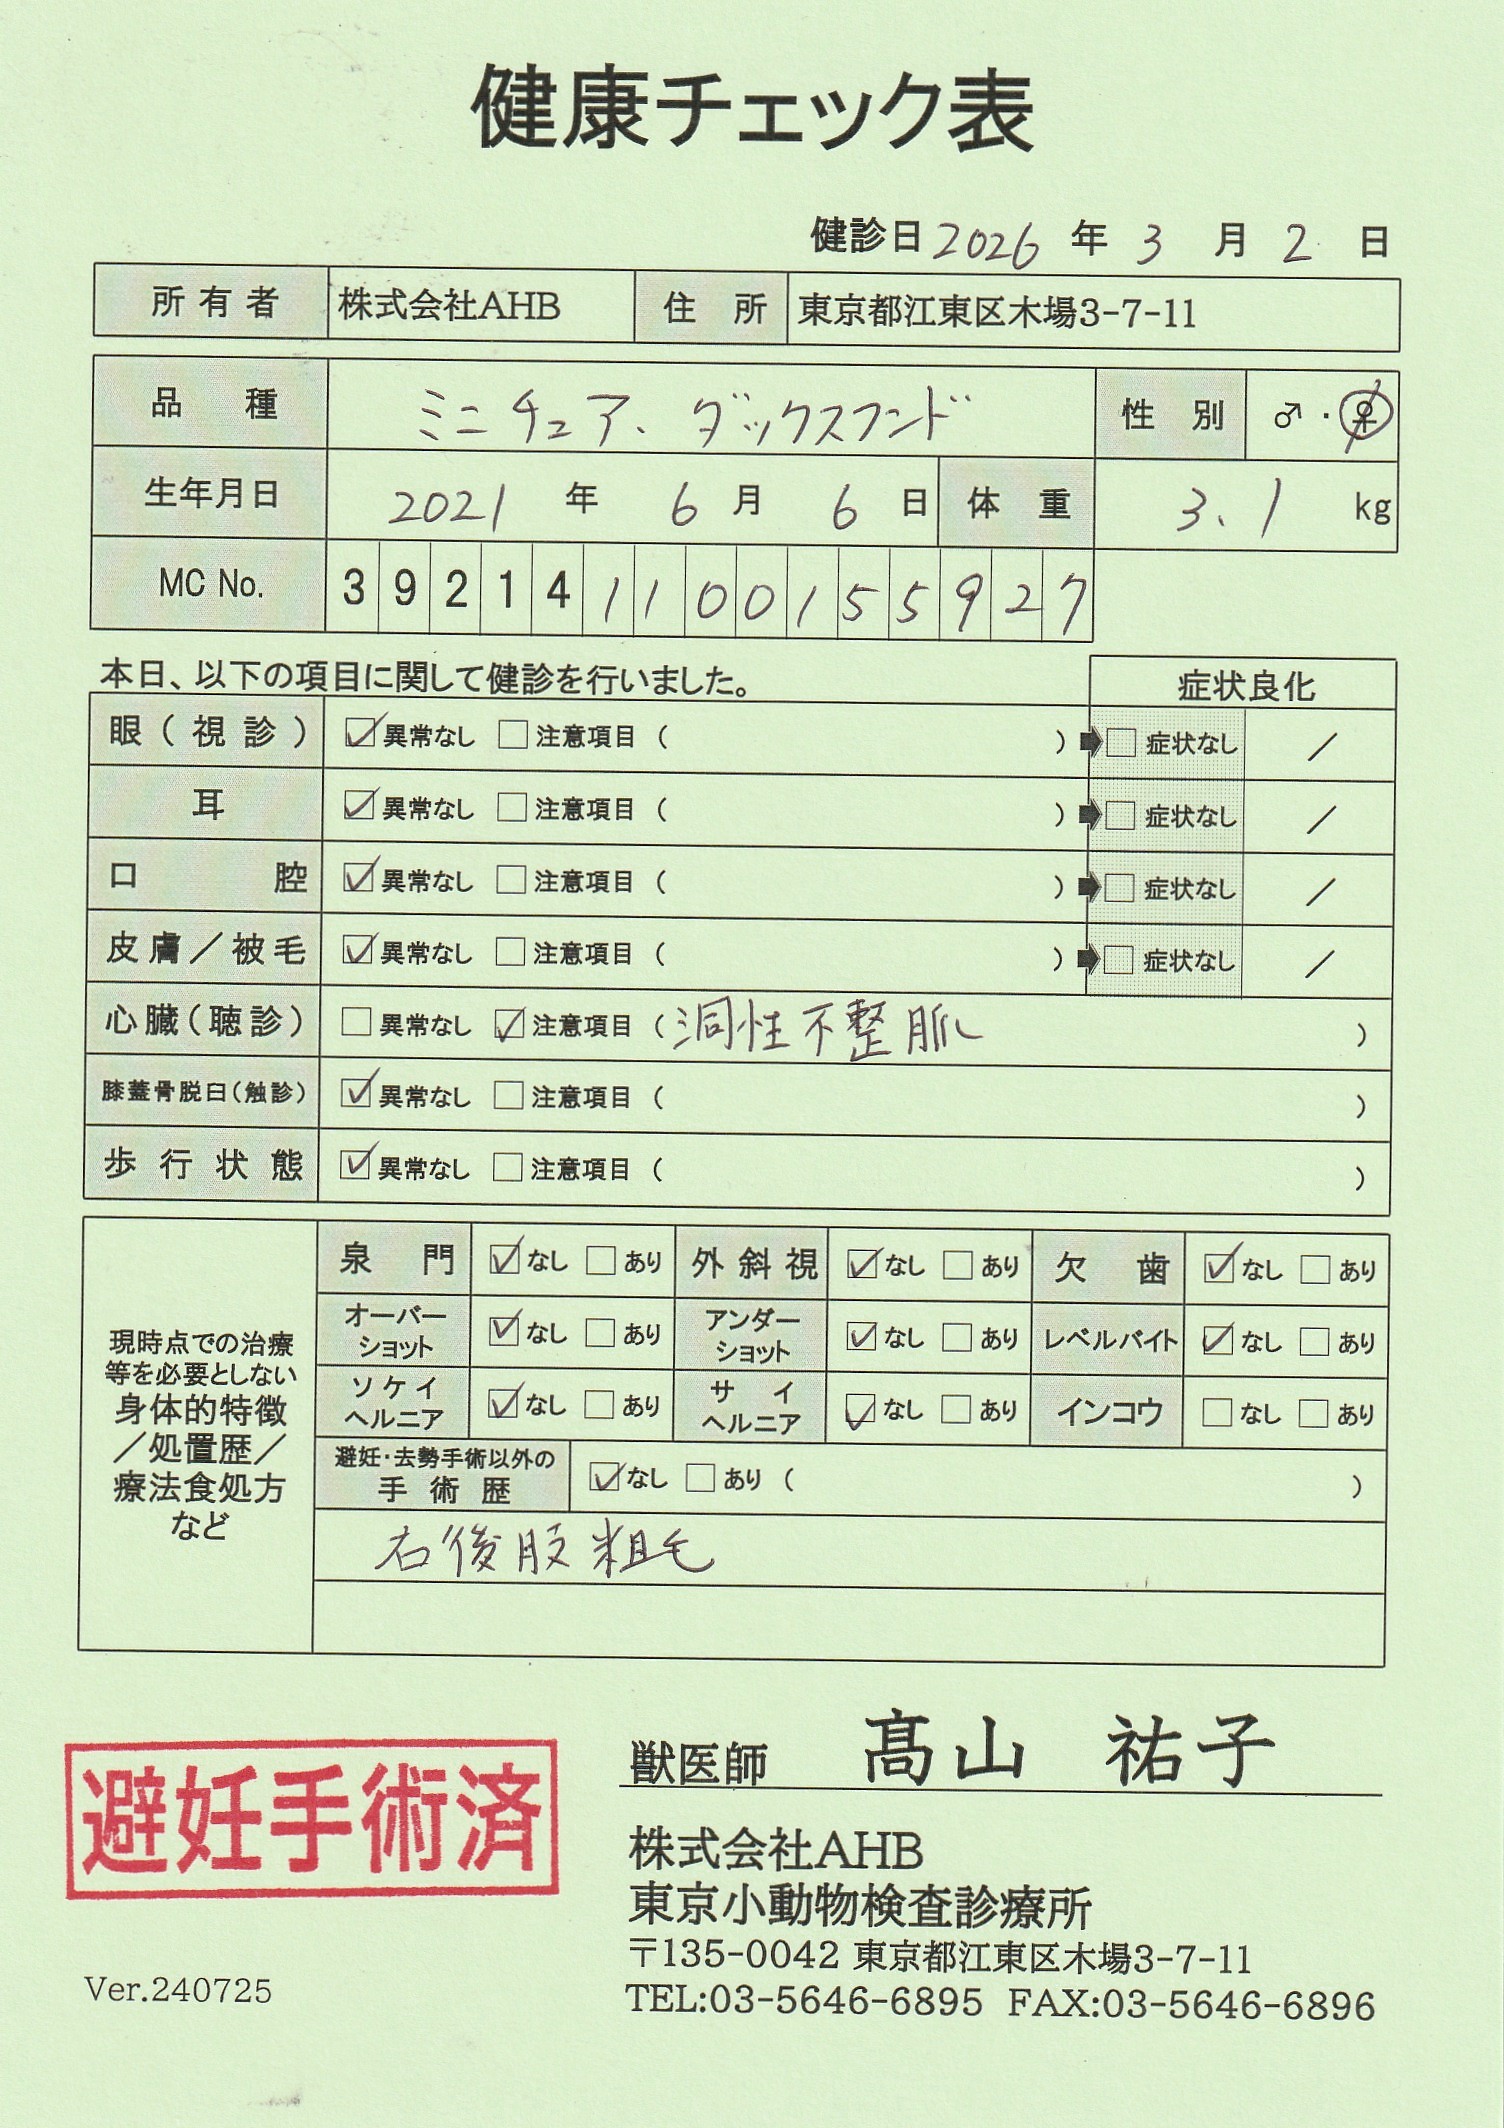 健康チェック表
健診日 2026 年 3 月 2 日
所有者 株式会社AHB 住所 東京都江東区木場3-7-11
品種 ミニチュア、ダックスフンド 性別 ♂・♀
生年月日 2021 年 6 月 6 日 体重 3.1 kg
MC No. 3 9 2 1 4 1 1 0 0 1 5 5 9 2 7
本日、以下の項目に関して健診を行いました。 症状良化
眼(視診) ☑異常なし □注意項目( ) ➡□症状なし /
耳 ☑異常なし □注意項目( ) ➡□症状なし /
口腔 ☑異常なし □注意項目( ) ➡□症状なし /
皮膚/被毛 ☑異常なし □注意項目( ) ➡□症状なし /
心臓(聴診) □異常なし ☑注意項目(洞性不整脈 )
膝蓋骨脱臼(触診) ☑異常なし □注意項目( )
歩行状態 ☑異常なし □注意項目( )
現時点での治療
等を必要としない
身体的特徴
/処置歴/
療法食処方
など
泉門 ☑なし □あり 外斜視 ☑なし □あり 欠歯 ☑なし □あり
オーバーショット ☑なし □あり アンダーショット ☑なし □あり レベルバイト ☑なし □あり
ソケイヘルニア ☑なし □あり サイヘルニア ☑なし □あり インコウ □なし □あり
避妊・去勢手術以外の手術歴 ☑なし □あり( )
右後肢粗毛
避妊手術済
獣医師 髙山 祐子
株式会社AHB
東京小動物検査診療所
〒135-0042 東京都江東区木場3-7-11
TEL:03-5646-6895 FAX:03-5646-6896
Ver.240725